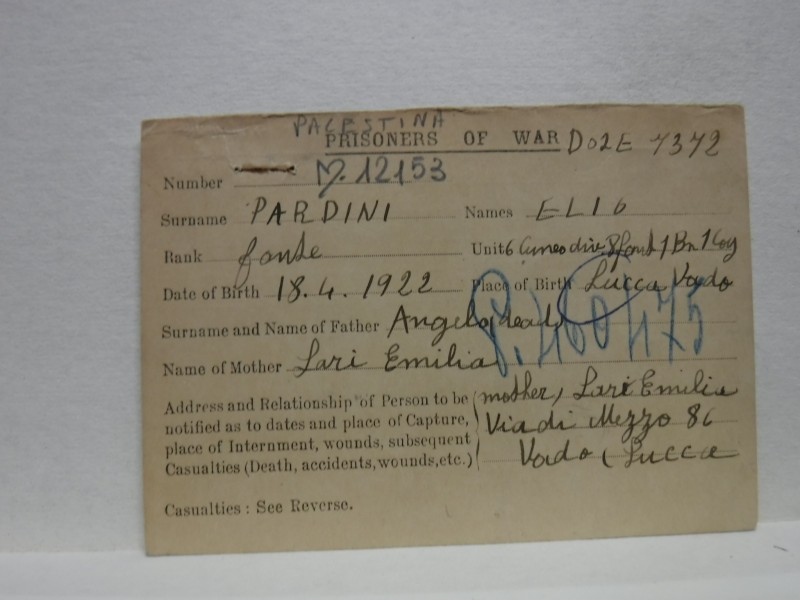 PALESTINA
PRISONERS OF WAR DO2E 7372
Number M. 12153
Surname PARDINI Names ELIO
Rank fante Unit 6 Cuneo div. 8 fant 1 Bn 1 Coy
Date of Birth 18.4.1922 Place of Birth Lucca Vado
Surname and Name of Father Angelo, dead
P. 460475
Name of Mother Lari Emilia
Address and Relationship of Person to be mother, Lari Emilia
notified as to dates and place of Capture, Via di Mezzo 86
place of Internment, wounds, subsequent Vado (Lucca
Casualties (Death, accidents, wounds, etc.)
Casualties : See Reverse.